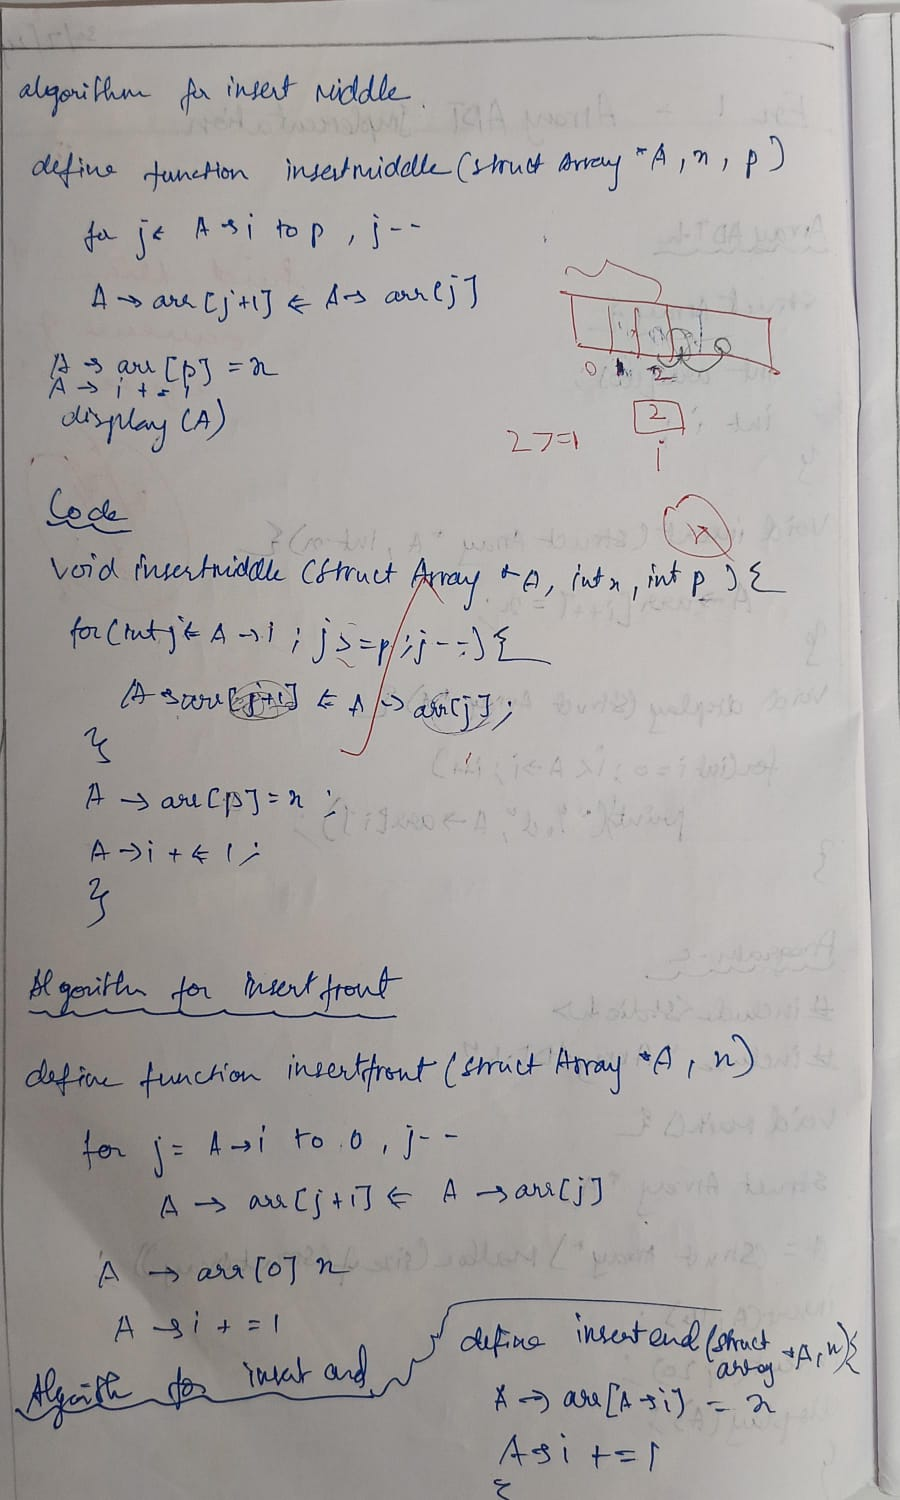 algorithm for insert middle.
define function insertmiddle (struct Array *A, x, p)
for j ← A → i to p, j--
A → arr [j+1] ← A → arr[j]
A → arr [p] = x
A → i += 1
display (A)
0 1 2
2
2 >= 1
i
Code
Void insertmiddle (struct Array *A, int x, int p) {
for (int j ← A → i ; j >= p ; j--) {
A → arr[j+1] ← A → arr[j];
}
A → arr [p] = x ;
A → i + ← 1 ;
}
Algorithm for insert front
define function insertfront (struct Array *A, x)
for j = A → i to 0, j--
A → arr [j+1] ← A → arr[j]
A → arr [0] x
A → i += 1
Algorith for insert end
define insertend (struct
array *A, x) {
A → arr [A → i] = x
A → i += 1
}